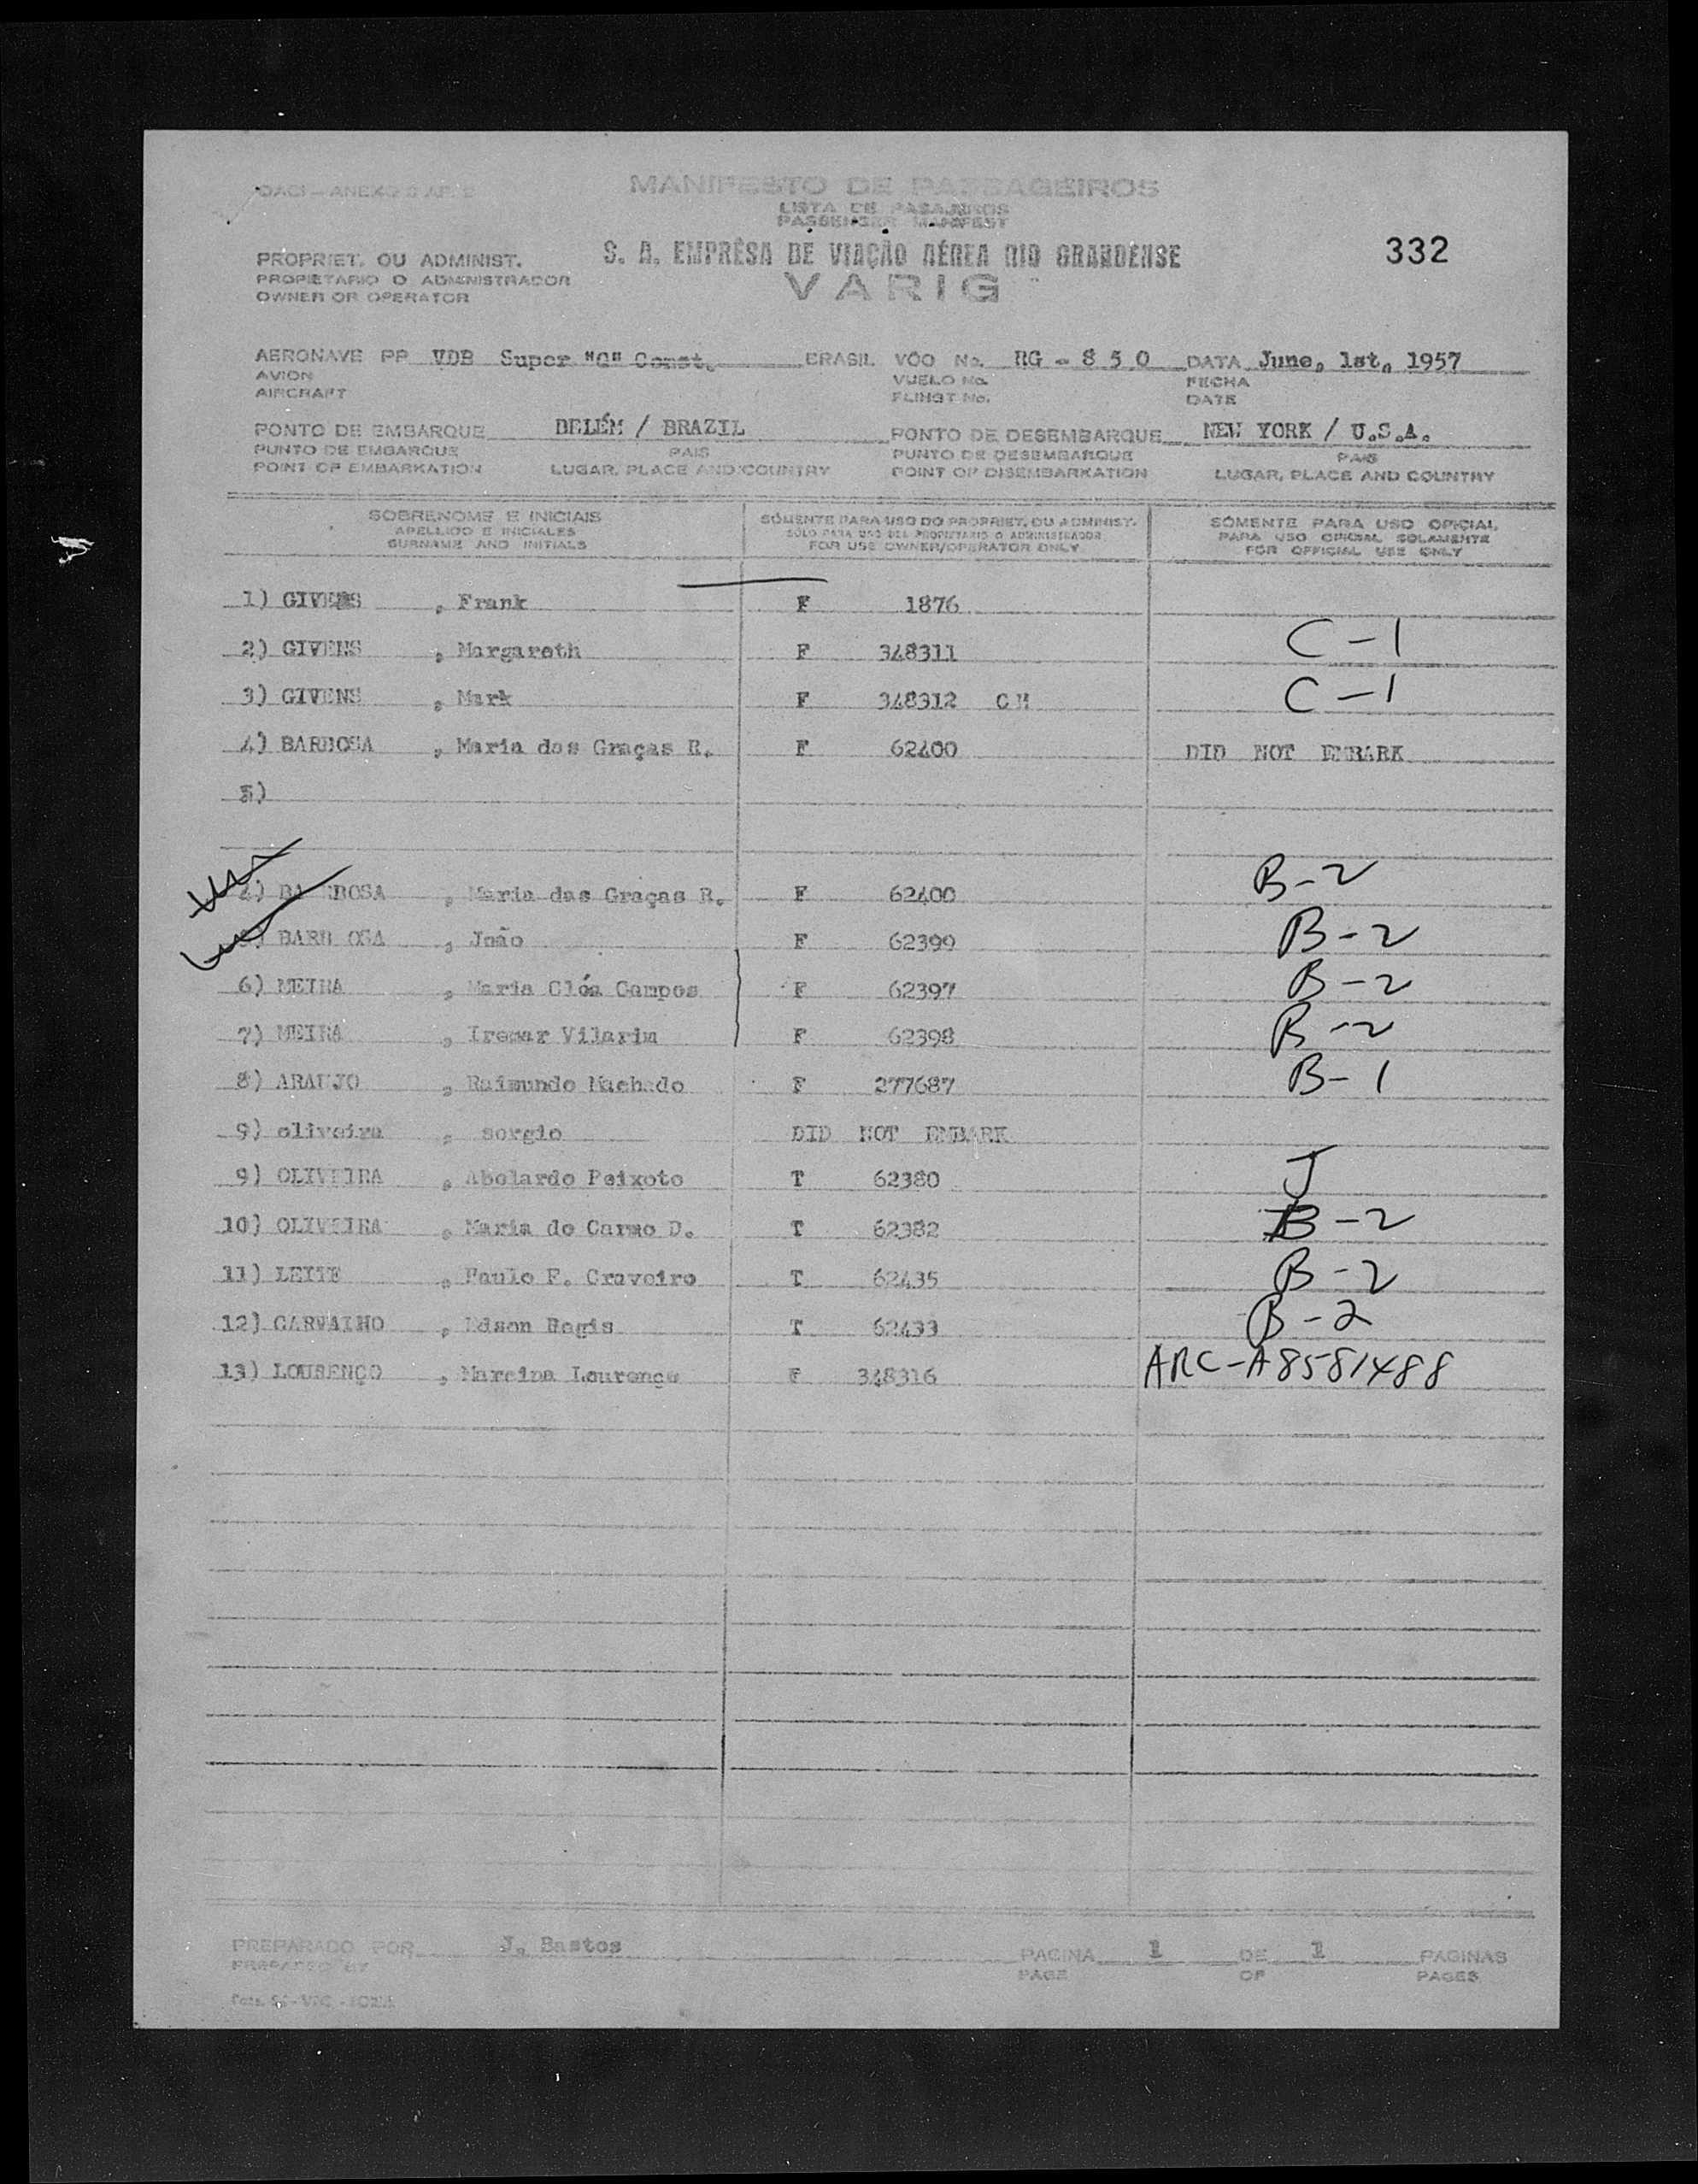 OACI — ANEXO 9 AP. 2
MANIFESTO DE PASSAGEIROS
LISTA DE PASAJEROS
PASSENGER MANIFEST
S. A. EMPRÊSA DE VIAÇÃO AÉREA RIO GRANDENSE
VARIG
332
PROPRIET. OU ADMINIST.
PROPIETARIO O ADMINISTRADOR
OWNER OR OPERATOR
AERONAVE PP VDB Super "G" Const. BRASIL VÔO No. RG - 8 5 0 DATA June, 1st, 1957
AVION VUELO No. FECHA
AIRCRAFT FLIHGT No. DATE
PONTO DE EMBARQUE BELÉM / BRAZIL PONTO DE DESEMBARQUE NEW YORK / U.S.A.
PUNTO DE EMBARQUE PAIS PUNTO DE DESEMBARQUE PAIS
POINT OF EMBARKATION LUGAR, PLACE AND COUNTRY POINT OF DISEMBARKATION LUGAR, PLACE AND COUNTRY
SOBRENOME E INICIAIS SÓMENTE PARA USO DO PROPRIET. OU ADMINIST. SÓMENTE PARA USO OFICIAL
APELLIDO E INICIALES SÓLO PARA USO DEL PROPIETARIO O ADMINISTRADOR PARA USO OFICIAL SOLAMENTE
SURNAME AND INITIALS FOR USE OWNER/OPERATOR ONLY FOR OFFICIAL USE ONLY
1) GIVENS , Frank F 1876
2) GIVENS , Margareth F 348311 C-1
3) GIVENS , Mark F 348312 C H C-1
4) BARBOSA , Maria das Graças R. F 62400 DID NOT EMBARK
5)
4) BARBOSA , Maria das Graças R. F 62400 B-2
5) BARBOSA , João F 62399 B-2
6) MEIRA , Maria Cléa Campos F 62397 B-2
7) MEIRA , Iremar Vilarim F 62398 B-2
8) ARAUJO , Raimundo Machado F 277687 B-1
9) oliveira , sergio DID NOT EMBARK
9) OLIVEIRA , Abelardo Peixoto T 62380 J
10) OLIVEIRA , Maria do Carmo D. T 62382 B-2
11) LEITE , Paulo F. Craveiro T 62435 B-2
12) CARVALHO , Edson Regis T 62433 B-2
13) LOURENÇO , Mareina Lourenço F 348316 ARC-A8581488
PREPARADO POR J. Bastos PAGINA 1 DE 1 PAGINAS
PREPARED BY PAGE OF PAGES